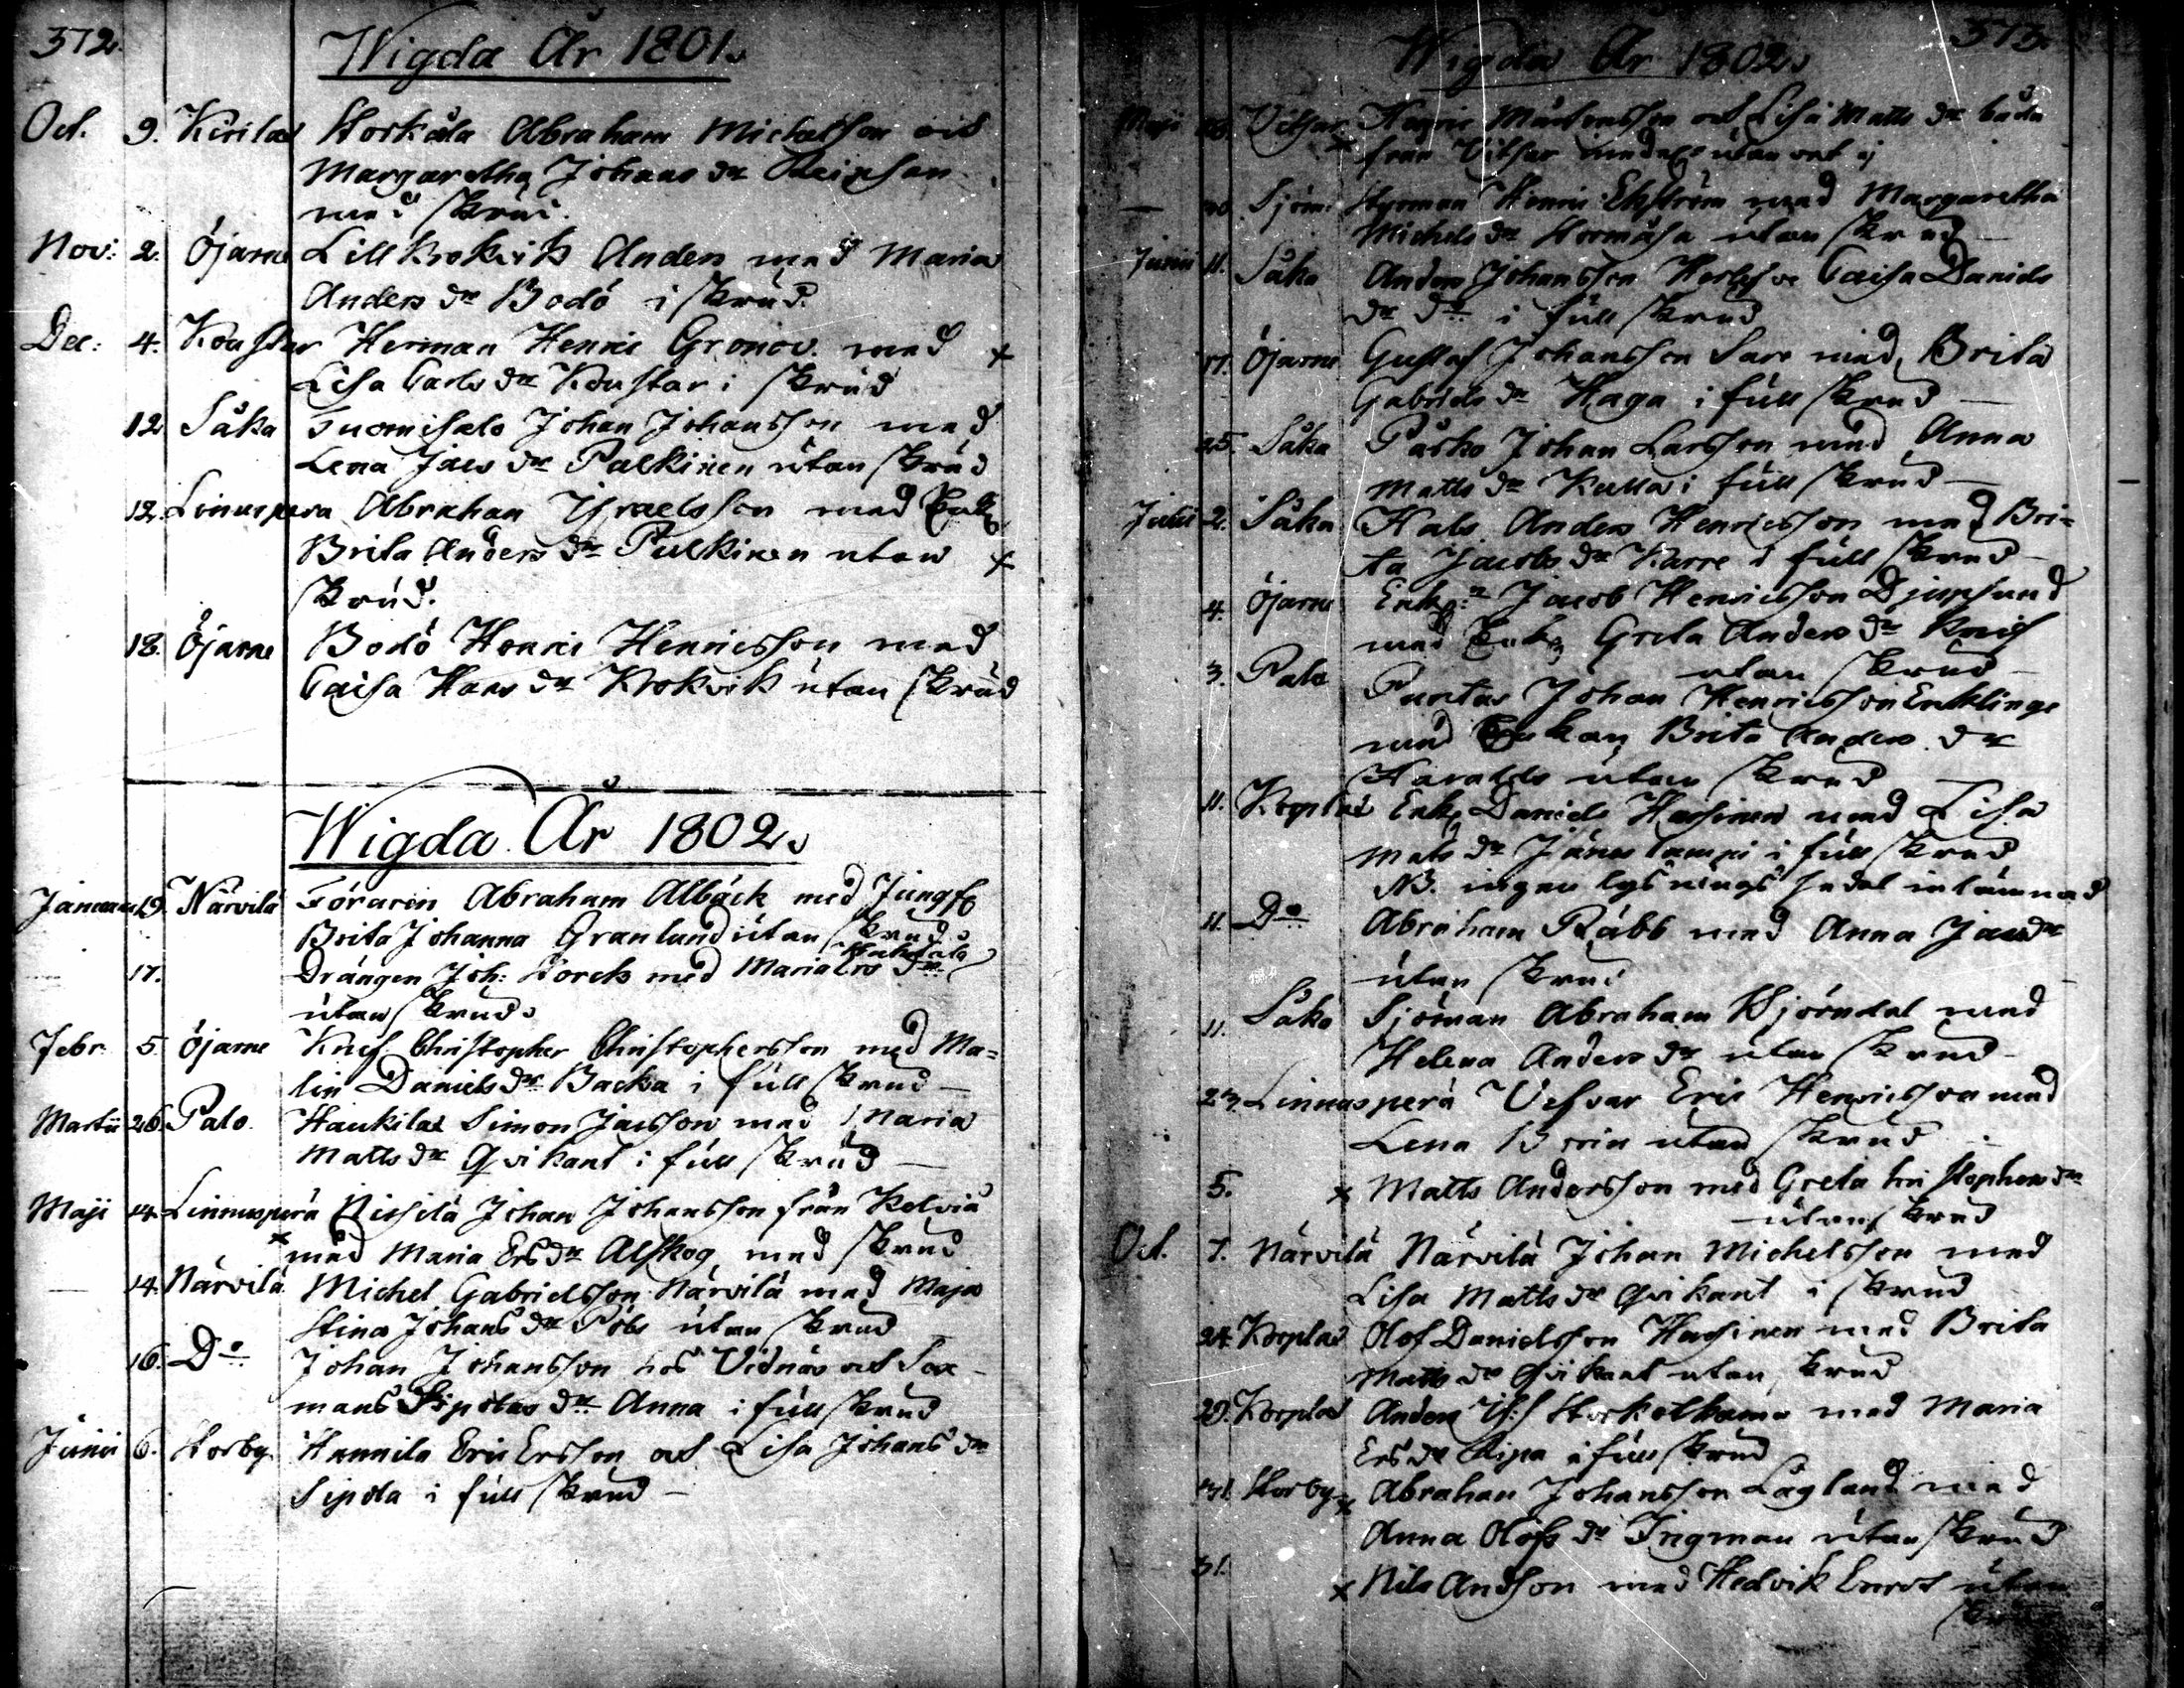 372.
Wigda År 1801.
Oct. 9. Kirilax Storkåla Abraham Michelsson med
Margaretha Johans dr Reipson
med skrud.
Nov: 2. Öjarne Lill Krokvik Anders med Maria
Anders dr Bodö i skrud.
Dec: 4. Koustar Herman Henric Gronov. med x
Lisa Carls dr Koustar i skrud
12 Såka Tuomisalo Johan Johansson med
Lena Jacs dr Palkinen utan skrud
12. Linnuspera Abraham Israelsson med Enk
Brita Anders dr Pulkinen utan x
skrud.
18. Öjarne Bodö Henric Henricsson med
Caisa Hans dr Krokvik utan skrud
Wigda År 1802.
Januarii 19. Närvilä Förarin Abraham Albäck med Jungf
Brita Johanna Granlund utan skrud.
17. Drängen Joh: Storck med Maria Ers dr
utan skrud.
Febr. 5. Öjarne Knif Christopher Christophersson med Ma-
lin Daniels dr Backa i full skrud –
Martii 26. Palo. Haukilax Simon Jacsson med Maria
Matts dr Qvikant i full skrud –
Maji 14. Linnusperä Nissilä Johan Johansson från Kelviå
x med Maria Ers dr Alskog med skrud
— 14. Närvilä Michel Gabrielsson Närvilä med Maja
Stina Johans dr Pöbs utan skrud
16. Do Johan Johansson hos Vidnäs och Sex-
mans Sipolas dr Anna i full skrud
Junii 6. Storby. Hannila Eric Ersson och Lisa Johans dr
Sipola i full skrud –
373.
Wigda År 1802.
Maji Vitsar x Henric Mårtensson och Lisa Matts dr båda
från Vitsar
— 30 Sjöm: Styrman Henric Ekström med Margaretha
Michels dr utan skrud –
Junii 11. Såka Anders Johansson Caisa Daniels
dr do i full skrud
17. Öjarne Gustaf Johansson Sare med Brita
Gabriels dr Haga i full skrud –
25. Såka Påsko Johan Larsson med Anna
Matts dr Kulla i full skrud –
Julii 2. Såka Hals Anders Henricsson med Bri-
ta Jacobs dr Karre i full skrud –
4. Öjarne Enkl:n Jacob Henricsson Djupsund
med Enk Greta Anders dr Knif
utan skrud –
3. Palo Puntus Johan Henricsson Enklinge
med Enkan Brita Anders dr
Haralds utan skrud –
11. Koplax Enkl Daniels Hassinen med Lisa
Mats dr Jänes lampi i full skrud
NB. ingen lysnings sedel inlämnad
11. Do Abraham Råbb med Anna Jacs dr
utan skrud
11. Såka Sjöman Abraham Björndal med
Helena Anders dr utan skrud –
23. Linnusperä Ulfvar Eric Henricsson med
Lena Brin utan skrud –
5. x Matts Andersson med Greta Christophers dr
utan skrud
Oct. 7. Närvilä Närvilä Johan Michelsson med
Lisa Matts dr Qvikant i skrud
24. Koplax Olof Danielsson Hassinen med Brita
Matts dr Qvikant utan skrud
29. Koplax Anders Storkolkama med Maria
Ers dr Ripa i full skrud
31. Storby x Abraham Johansson Lågland med
Anna Olofs dr Tngman utan skrud
31. x Nils Andsson med Hedvik Enrot utan
skrud